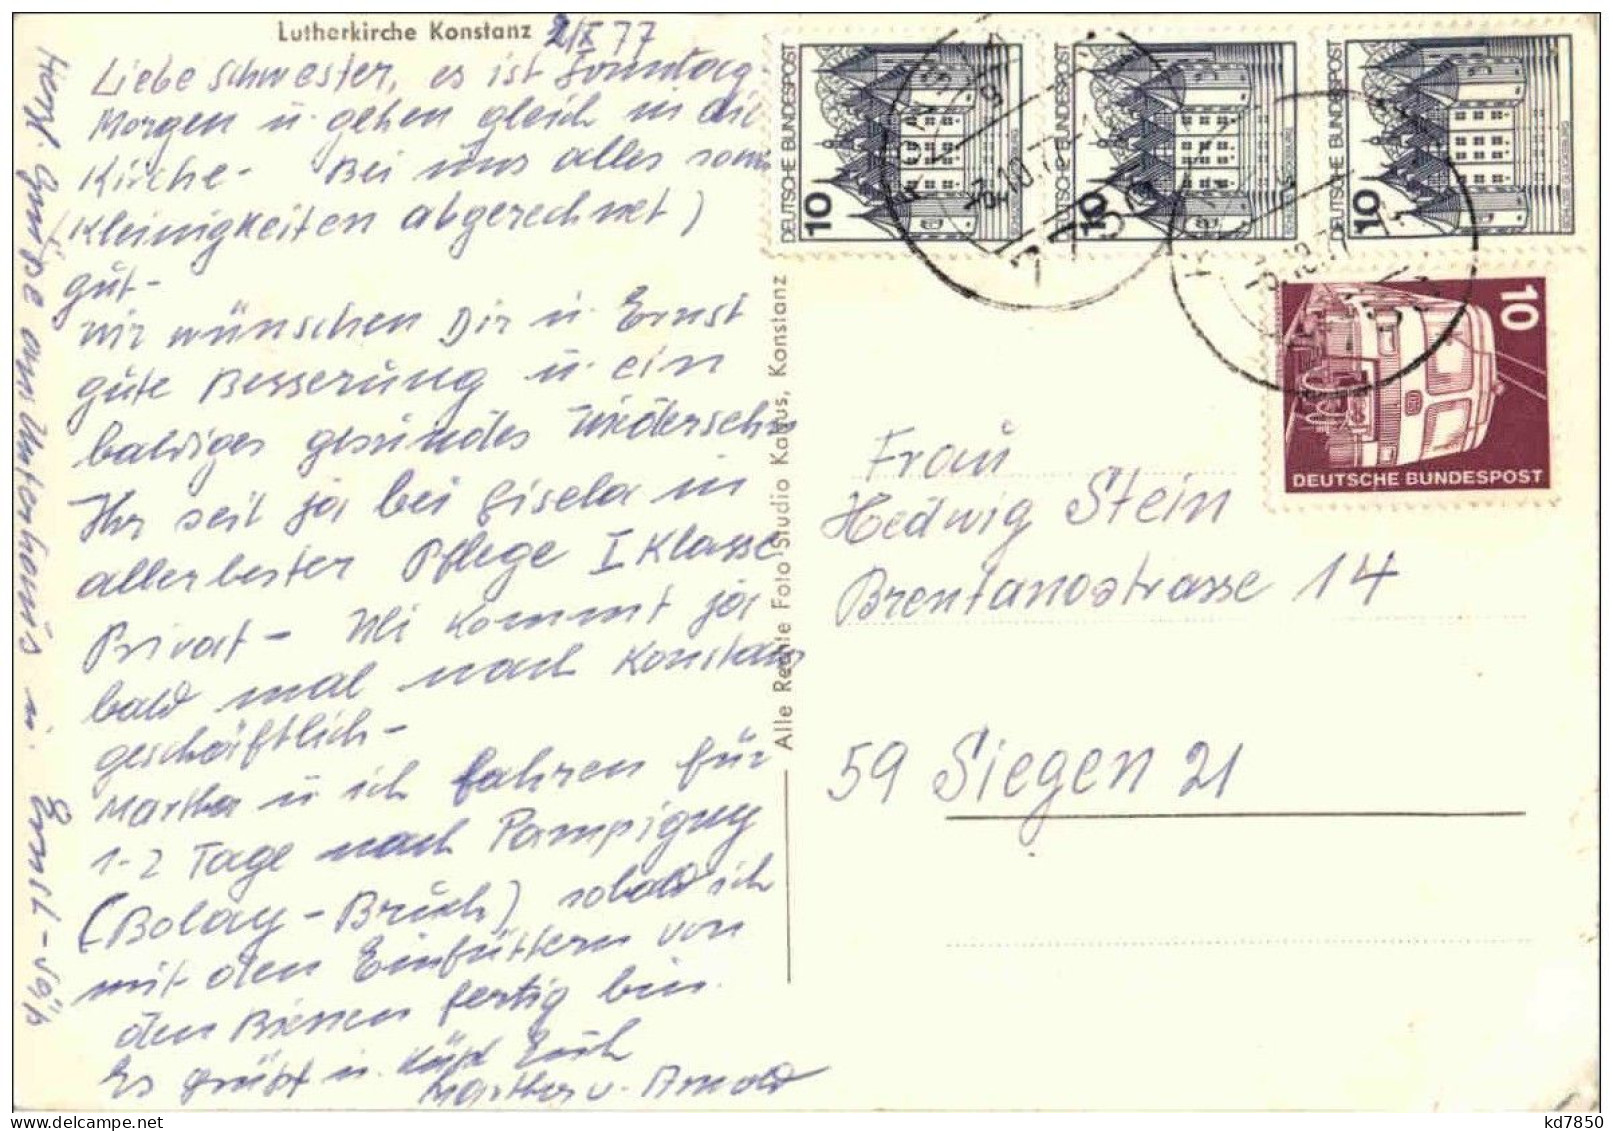 Lutherkirche Konstanz 2/X 77
Liebe Schwester, es ist Sonntag
Morgen u. gehen gleich in die
Kirche - Bei uns alles
Kleinigkeiten abgerechnet)
gut -
Wir wünschen Dir u. Ernst
gute Besserung u. ein
baldiges gesundes Wiedersehn
Ihr seit ja bei Gisela in
allerbester Pflege I Klasse
Privat - Uli kommt ja
bald mal nach Konstanz
geschäftlich -
Martha u ich fahren für
1-2 Tage nach Pampigny
(Bolay - Bruch) sobald ich
mit den Einfüttern von
den Bienen fertig bin.
Es grüßt u. küßt Euch
Martha u. Arnold
Herzl. Grüße ans Unterhaus u. Ernst -
Alle Rechte Foto Studio Kabus, Konstanz
DEUTSCHE BUNDESPOST
10
DEUTSCHE BUNDESPOST
10
DEUTSCHE BUNDESPOST
10
10
DEUTSCHE BUNDESPOST
Frau
Hedwig Stein
Brentanostrasse 14
59 Siegen 21
kd7850